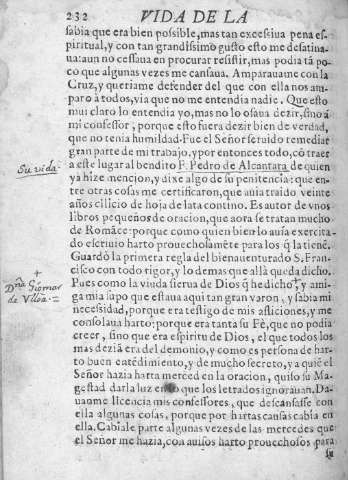 232 VIDA DE LA
sabia que era bien possible, mas tan excessiua pena es-
piritual, y con tan grandissimo gusto esto me desatina-
ua: aun no cessaua en procurar resistir, mas podia tã po-
co que algunas vezes me cansaua. Amparauame con la
Cruz, y queriame defender del que con ella nos am-
paro à todos, via que no me entendia nadie. Que esto
mui claro lo entendia yo, mas no lo osaua dezir, sino à
mi confessor, porque esto fuera dezir bien de verdad,
que no tenia humildad. Fue el Señor seruido remediar
gran parte de mi trabajo, y por entonces todo, cõ traer
a este lugar al bendito F. Pedro de Alcantara de quien
Su vida
ya hize mencion, y dixe algo de su penitencia: que en-
tre otras cosas me certificaron, que auia traido veinte
años cilicio de hoja de lata contino. Es autor de vnos
libros pequeños de oracion, que aora se tratan mucho
de Romãce: porque como quien bien lo auia exercita-
do escriuio harto prouechosamẽte para los q̃ la tienẽ.
Guardò la primera regla del bienauenturado S. Fran-
cisco con todo rigor, y lo demas que allà queda dicho.
Pues como la viuda sierua de Dios q̃ he dicho, y ami-
+
Dña Giomar
de Vlloa =
ga mia supo que estaua aqui tan gran varon, y sabia mi
necessidad, porque era testigo de mis afliciones, y me
consolaua harto: porque era tanta su Fè, que no podia
creer, sino que era espiritu de Dios, el que todos los
mas dezia era del demonio, y como es persona de har-
to buen entẽdimiento, y de mucho secreto, y a quiẽ el
Señor hazia harta merced en la oracion, quiso su Ma-
gestad darla luz en lo que los letrados ignorauan. Da-
uame licencia mis confessores, que descansasse con
ella algunas cosas, porque por hartas causas cabia en
ella. Cabiale parte algunas vezes de las mercedes que
el Señor me hazia, con auisos harto prouechosos para
su